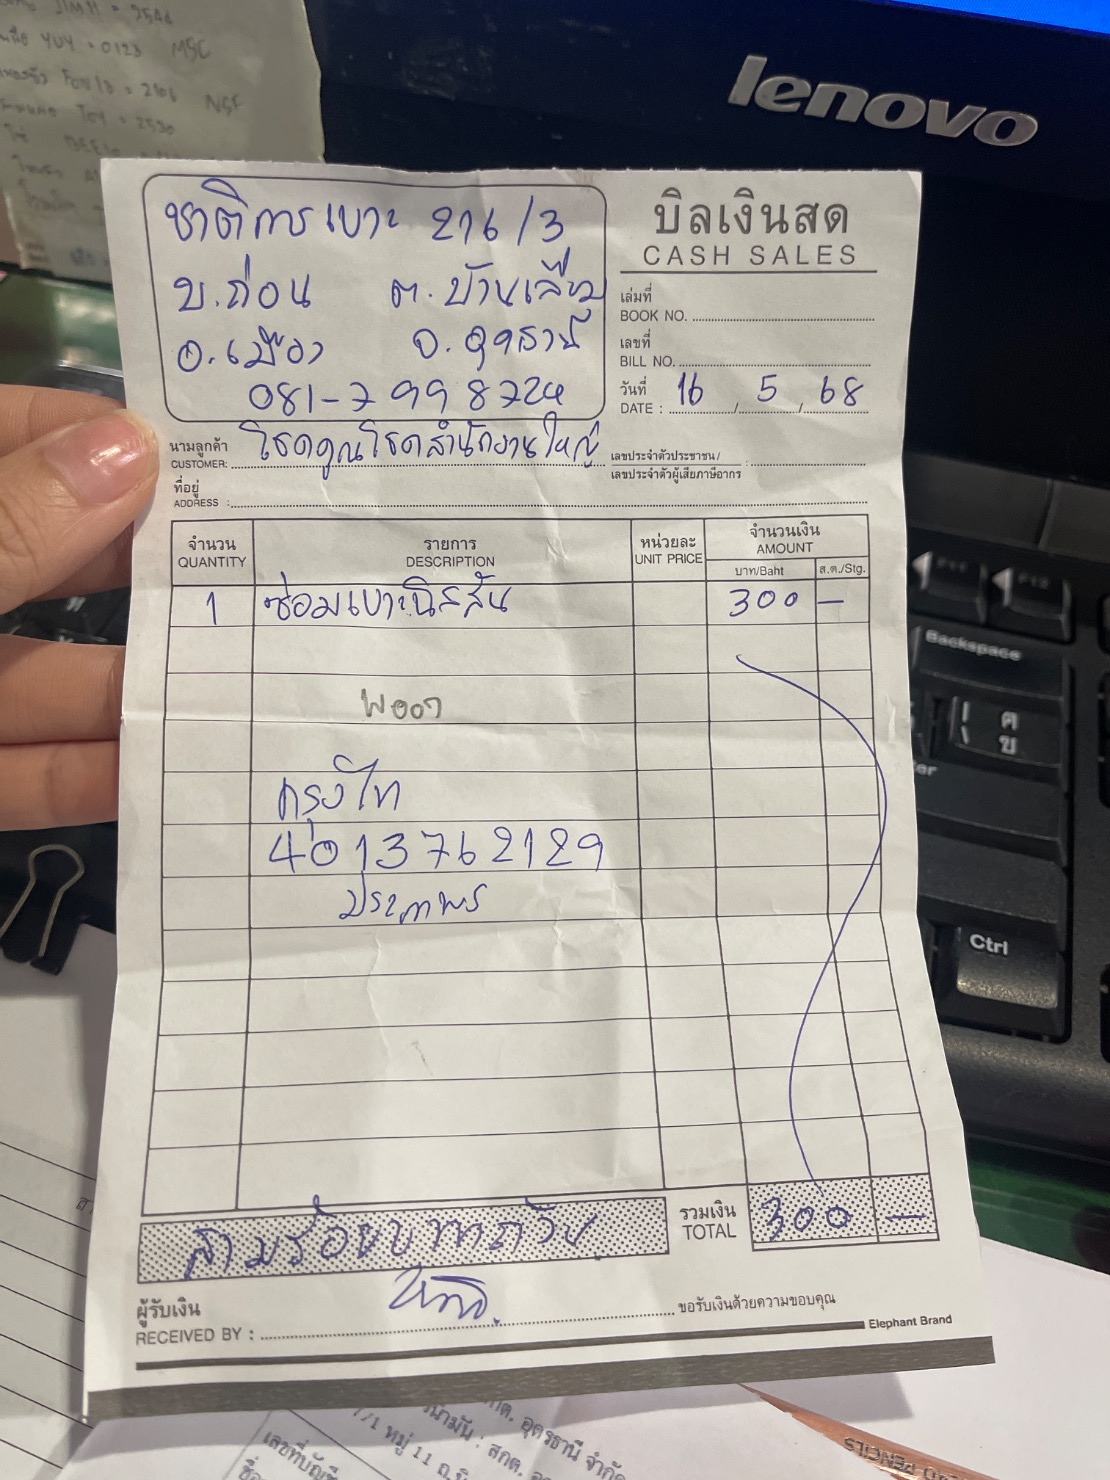 lenovo
ชาติการเบาะ 216/3
บ.ถ่อน ต.บ้านเลื่อม
อ.เมือง จ.อุดรธานี
081-7998724
บิลเงินสด
CASH SALES
เล่มที่
BOOK NO.
เลขที่
BILL NO.
วันที่ 16 / 5 / 68
DATE :
นามลูกค้า โชคคูณโชคสำนักงานใหญ่
CUSTOMER:
เลขประจำตัวประชาชน/
เลขประจำตัวผู้เสียภาษีอากร :
ที่อยู่
ADDRESS :
จำนวน รายการ หน่วยละ จำนวนเงิน
QUANTITY DESCRIPTION UNIT PRICE AMOUNT
บาท/Baht ส.ต./Stg.
1 ซ่อมเบาะนิสสัน 300 –
กรุงไท
4013762129
ประภาพร
สามร้อยบาทถ้วน
รวมเงิน 300 –
TOTAL
ผู้รับเงิน
RECEIVED BY :
ขอรับเงินด้วยความขอบคุณ
Elephant Brand
Backspace
Ctrl